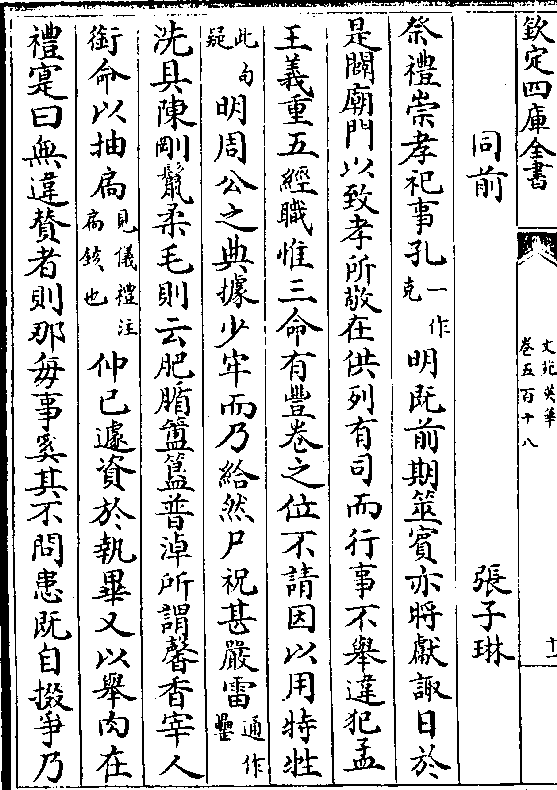 欽定四庫全書
文苑英華
卷五百十八
十
同前
張子琳
祭禮崇孝祀事孔一作克明既前期筮賓亦將獻諏日於
是闢廟門以致孝所敬在供列有司而行事不舉違犯孟
王義重五經職惟三命有豐卷之位不請因以用特牲
此句疑明周公之典據少牢而乃給然尸祝甚嚴雷通作罍
洗具陳剛鬛柔毛則云肥腯簠簋普淖所謂馨香宰人
銜命以抽扃見儀禮注扃鉉也仲已遽資於執畢又以舉肉在
禮寔曰無違贊者則那每事奚其不問患既自掇爭乃